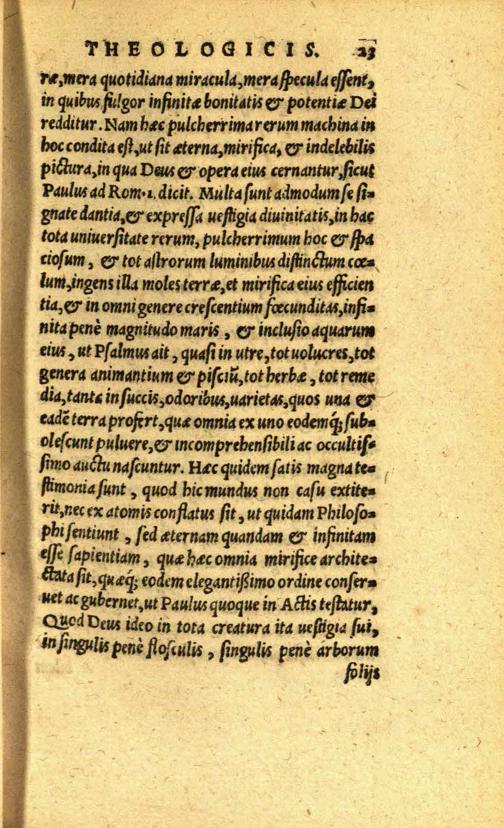 THEOLOGICIS. 23
ræ, mera quotidiana miracula, mera ſpecula eſſent,
in quibus fulgor infinitæ bonitatis & potentiæ Dei
redditur. Nam hæc pulcherrima rerum machina in
hoc condita eſt, ut ſit æterna, mirifica, & indelebilis
pictura, in qua Deus & opera eius cernantur, ſicut
Paulus ad Rom. 1. dicit. Multa ſunt admodum ſe ſi-
gnate dantia, & expreſſa ueſtigia diuinitatis, in hac
tota uniuerſitate rerum, pulcherrimum hoc & ſpa
cioſum, & tot aſtrorum luminibus diſtinctum cœ=
lum, ingens illa moles terræ, et mirifica eius efficien
tia, & in omni genere creſcentium fœcunditas, infi=
nita penè magnitudo maris, & incluſio aquarum
eius, ut Pſalmus ait, quaſi in utre, tot uolucres, tot
genera animantium & piſciũ, tot herbæ, tot reme
dia, tanta in ſuccis, odoribus, uarietas, quos una &
eadẽ terra profert, quæ omnia ex uno eodemq́; ſub=
oleſcunt puluere, & incomprehenſibili ac occultiſ=
ſimo auctu naſcuntur. Hæc quidem ſatis magna te=
ſtimonia ſunt, quod hic mundus non caſu extite=
rit, nec ex atomis conflatus ſit, ut quidam Philoſo=
phi ſentiunt, ſed æternam quandam & infinitam
eſſe ſapientiam, quæ hæc omnia mirifice archite=
ctata ſit, quæq́; eodem elegantißimo ordine conſer=
uet ac gubernet, ut Paulus quoque in Actis teſtatur,
Quod Deus ideo in tota creatura ita ueſtigia ſui,
in ſingulis penè floſculis, ſingulis penè arborum
folijs